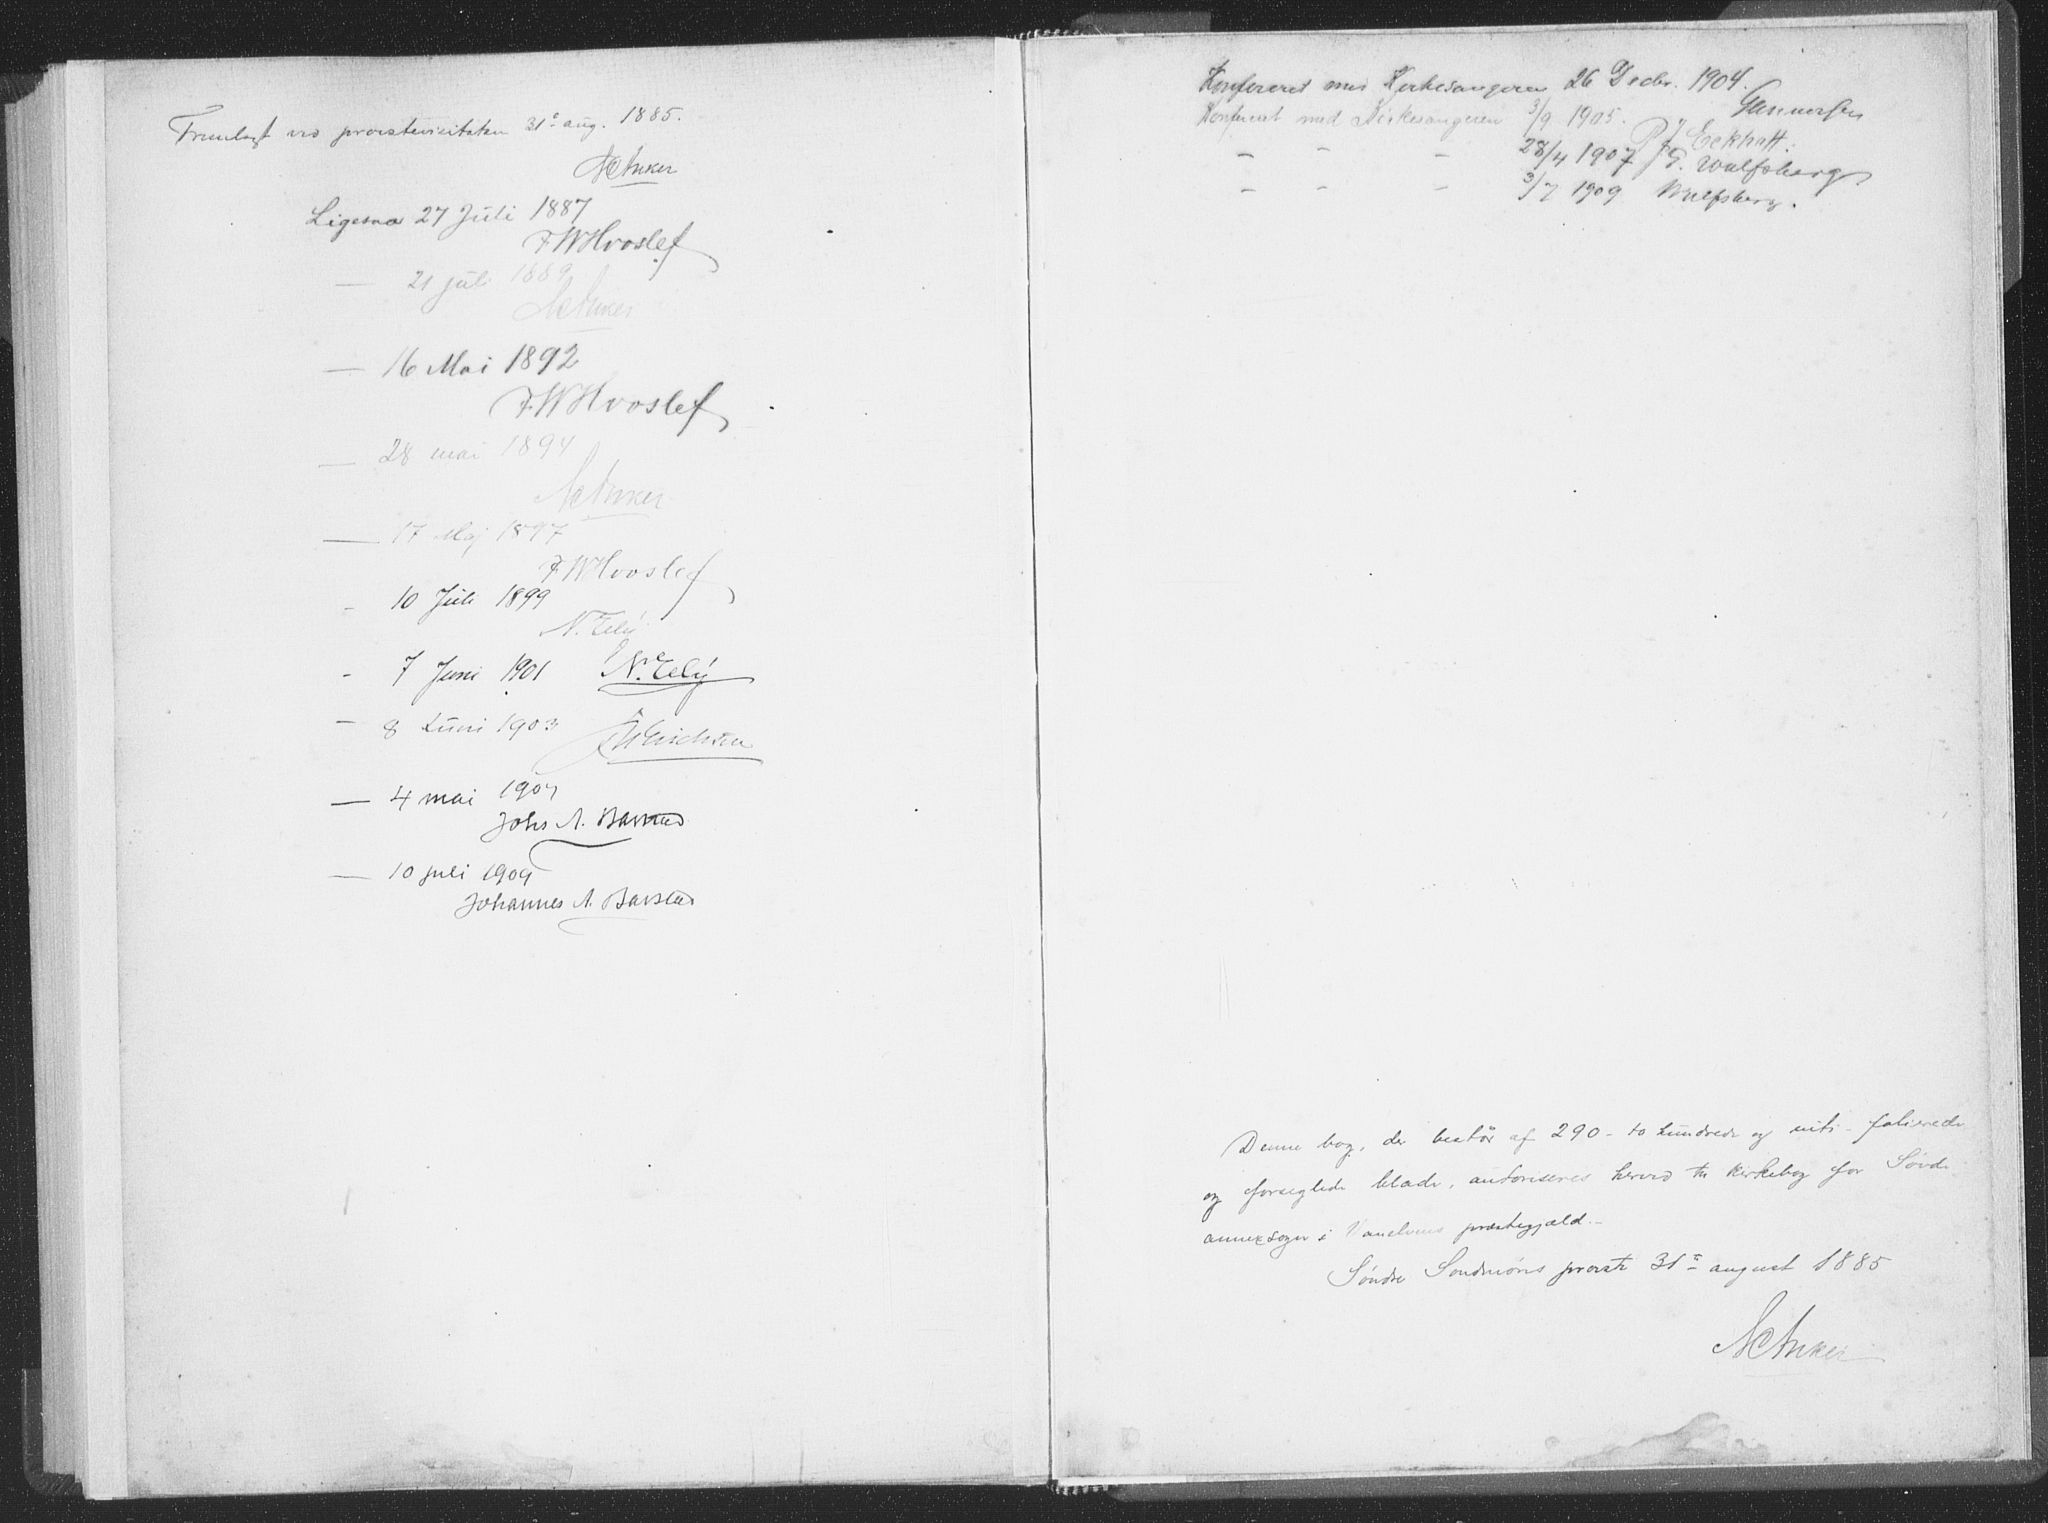 Fremlagt ved provstevisitatsen 31te aug. 1885.
NC Anker
Ligesaa 27 Juli 1887
F.W. Hvoslef
— 21 juli 1889
NC Anker
— 16 Mai 1892
F.W. Hvoslef
— 28 mai 1894
NC Anker
— 17 Maj 1897
F.W. Hvoslef
- 10 Juli 1899
- 7 Juni 1901
— 8 Juni 1903
— 4 mai 1907
Johs A. Barstad
— 10 juli 1909
Johannes A. Barstad
Konfereret med Kirkesangeren 26 Decbr. 1904.
Gunnersen
Konfereret med Kirkesangeren 3/9 1905.
Eckhoff.
" " " 28/4 1907 G. Wulfsberg
" " " 3/7 1909 Wulfsberg.
Denne bog, der består af 290 - to hundrede og niti - folierede
og forseglede blade, autoriseres herved til kirkebog for Søvde
annexsogn i Vanelvens præstegjæld.-
Søndre Søndmørs provsti 31te august 1885
NC Anker